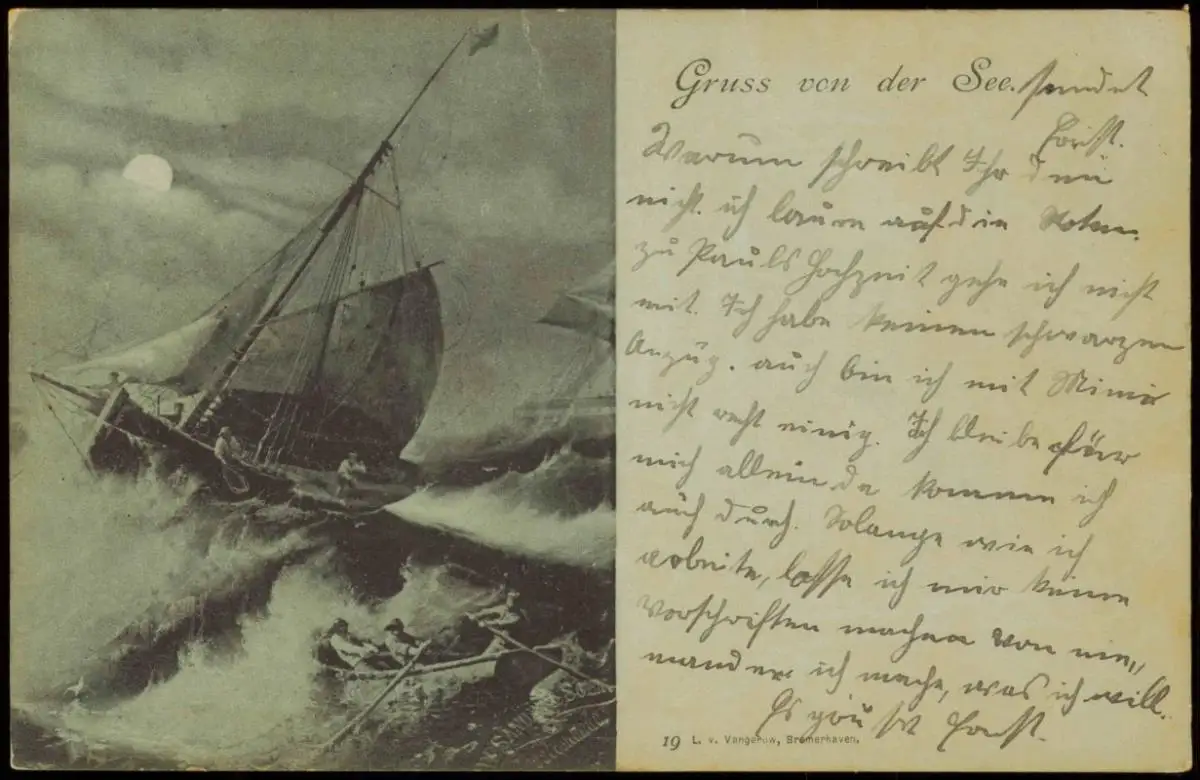 Gruss von der See. sendet
Horst.
Warum schreibt Ihr denn
nicht. ich laure auf die Noten
zu Pauls Hochzeit gehe ich nicht
mit. Ich habe keinen schwarzen
Anzug. auch bin ich mit Mimi
nicht recht einig. Ich bleibe für
mich allein da komme ich
auch durch. Solange wie ich
arbeite, lasse ich mir keine
Vorschriften machen von nie„
mand ich mache, was ich will.
Es Horst.
19 L. v. Vangerow, Bremerhaven.